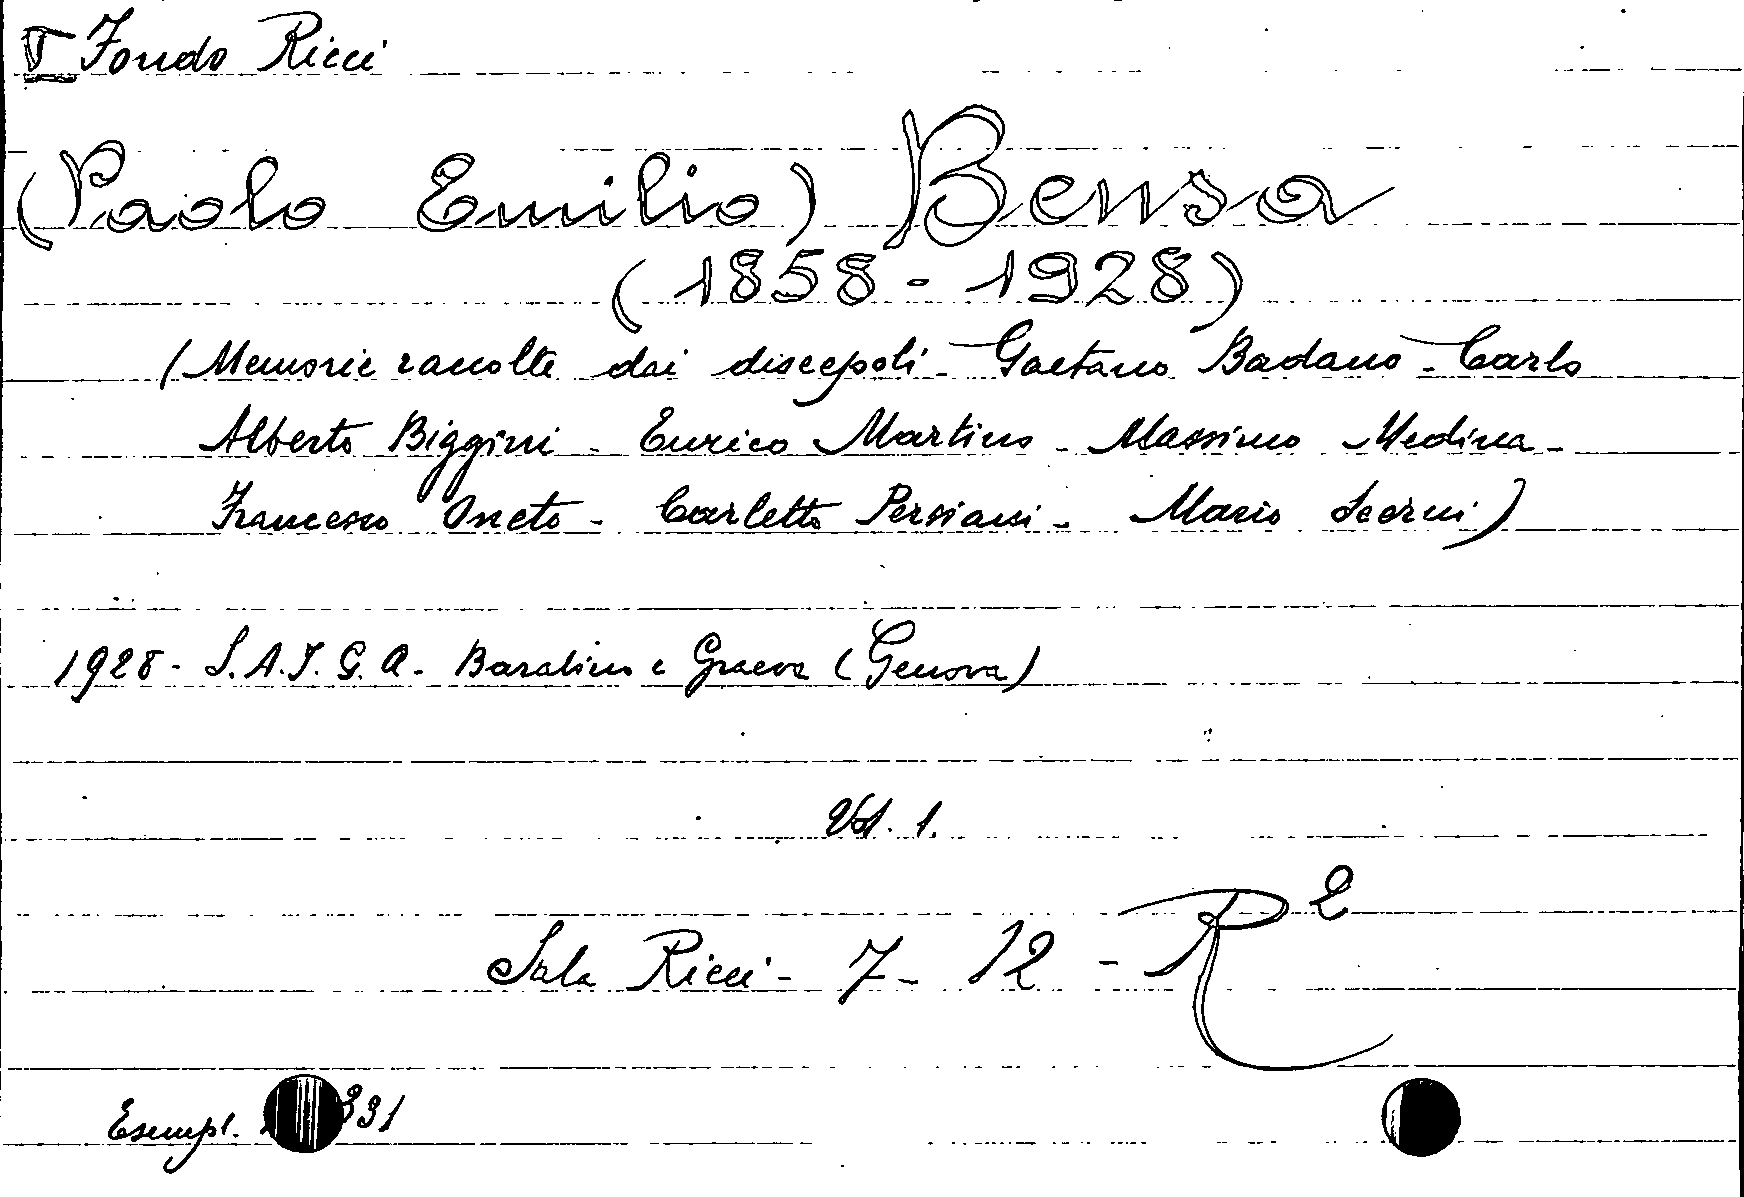 I Fondo Ricci
(Paolo Emilio) Bensa
(1858 - 1928)
(Memorie raccolte dai discepoli - Gaetano Badano - Carlo
Alberto Biggini - Enrico Martino - Massimo Medina -
Francesco Oneto - Carletto Persiani - Mario Scerni)
1928 - S.A.I.G.A. - Barabino e Graeve (Genova)
Vol. 1.
Sala Ricci - 7 - 12 - R²
Esempl. 331